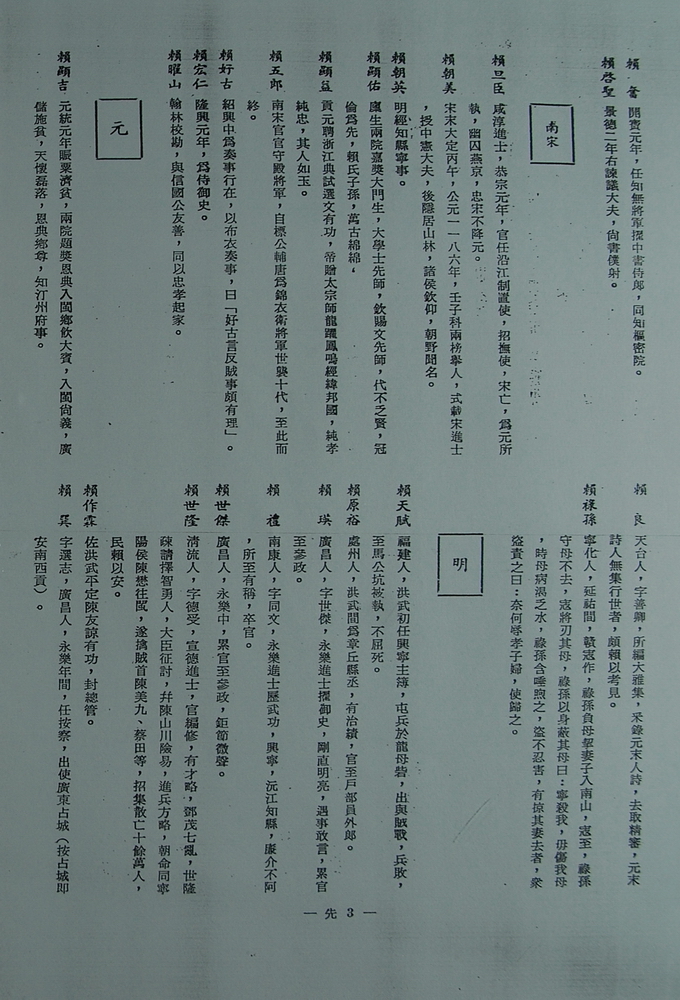 開寶元年，任知無將軍擢中書侍郎，同知樞密院。
賴啓聖 景德二年右諫議大夫，尚書僕射。
南宋
賴旦臣 咸淳進士，恭宗元年，官任沿江制置使，招撫使，宋亡，爲元所
執，幽囚燕京，忠宋不降元。
賴朝美 宋末大定丙午，公元一一八六年，壬子科兩榜舉人，式載宋進士
，授中憲大夫，後隱居山林，諸侯欽仰，朝野聞名。
賴朝英 明經知縣寧事。
賴顯佑 廩生兩院嘉獎大門生，大學士先師，欽賜文先師，代不乏賢，冠
倫爲先，賴氏子孫，萬古綿綿。
賴顯益 貢元聘浙江典試選文有功，帝贈太宗師龍躍鳳鳴經緯邦國，純孝
純忠，其人如玉。
賴五郎 南宋官官守殿將軍，自標公輔唐爲錦衣衛將軍世襲十代，至此而
終。
賴好古 紹興中爲奏事行在，以布衣奏事，曰「好古言反賊事頗有理」。
賴宏仁 隆興元年，爲侍御史。
賴曜山 翰林校勘，與信國公友善，同以忠孝起家。
元
賴顯吉 元統元年賑粟濟貧，兩院題獎恩典入閩鄉飲大賓，入閩尙義，廣
儲施貧，天懷磊落，恩典鄉尊，知汀州府事。
賴良 天台人，字善卿，所編大雅集，釆錄元末人詩，去取精審，元末
詩人無集行世者，頗賴以考見。
賴祿孫 寧化人，延祐間，贛寇作，祿孫負母挈妻子入南山，寇至，祿孫
守母不去，寇將刃其母，祿孫以身蔽其母曰：寧殺我，毋傷我母
，時母病渴乏水，祿孫含唾煦之，盜不忍害，有掠其妻去者，衆
盜責之曰：奈何辱孝子婦，使歸之。
明
賴天賦 福建人，洪武初任興寧主簿，屯兵於龍母砦，出與賊戰，兵敗，
至馬公坑被執，不屈死。
賴原裕 處州人，洪武間爲章丘縣丞，有治績，官至戶部員外郎。
賴瑛 廣昌人，字世傑，永樂進士擢御史，剛直明亮，遇事敢言，累官
至參政。
賴禮 南康人，字同文，永樂進士歷武功，興寧，沅江知縣，廉介不阿
，所至有稱，卒官。
賴世傑 廣昌人，永樂中，累官至參政，鉅節徵聲。
賴世隆 淸流人，字德受，宣德進士，官編修，有才略，鄧茂七亂，世隆
疎請擇智勇人，大臣征討，幷陳山川險易，進兵方略，朝命同寧
陽侯陳懋往閩，遂擒賊首陳美九、蔡田等，招集散亡十餘萬人，
民賴以安。
賴作霖 佐洪武平定陳友諒有功，封總管。
賴巽 字選志，廣昌人，永樂年間，任按察，出使廣東占城（按占城即
安南西貢）。
— 先 3 —